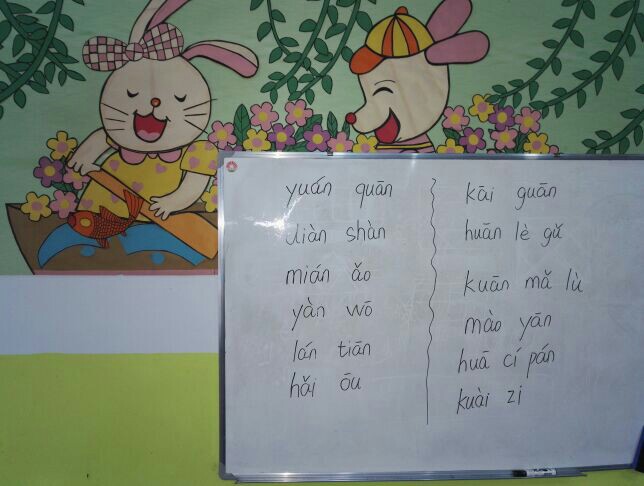 yuán quān
diàn shàn
mián ǎo
yàn wō
lán tiān
hǎi ōu
kāi guān
huān lè gǔ
kuān mǎ lù
mào yān
huā cí pán
kuài zi